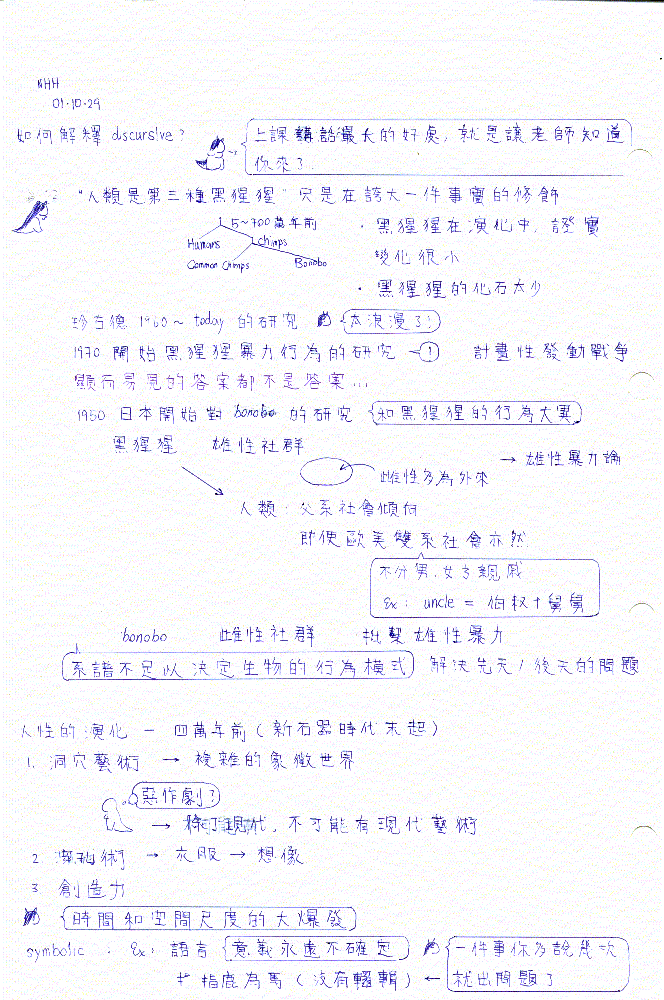 NHH
01.10.29
如何解釋 discursive?
上課講話最大的好處,就是讓老師知道
你來了.
"人類是第三種黑猩猩" 只是在誇大一件事實的修飾
5~700萬年前
Humans
Chimps
Common Chimps
Bonobo
· 黑猩猩在演化中,證實
變化很小
· 黑猩猩的化石太少
珍古德 1960 ~ today 的研究 太浪漫了!
1970 開始黑猩猩暴力行為的研究 → ! 計畫性發動戰爭
顯而易見的答案都不是答案...
1950 日本開始對 bonobo 的研究 和黑猩猩的行為大異
黑猩猩 雄性社群
雌性多為外來
→ 雄性暴力論
人類:父系社會傾向
即便歐美雙系社會亦然
不分男.女方親戚
Ex: uncle = 伯叔+舅舅
bonobo 雌性社群 批雙雄性暴力
系譜不足以決定生物的行為模式 解決先天/後天的問題
人性的演化 — 四萬年前(新石器時代末起)
1. 洞穴藝術 → 複雜的象徵世界
惡作劇?
→ 除了現代,不可能有現代藝術
2. 術 → 衣服 → 想像
3. 創造力
時間和空間尺度的大爆發
symbolic : Ex: 語言 意義永遠不確定
一件事你多說幾次
就出問題了
指鹿為馬(沒有邏輯) ←